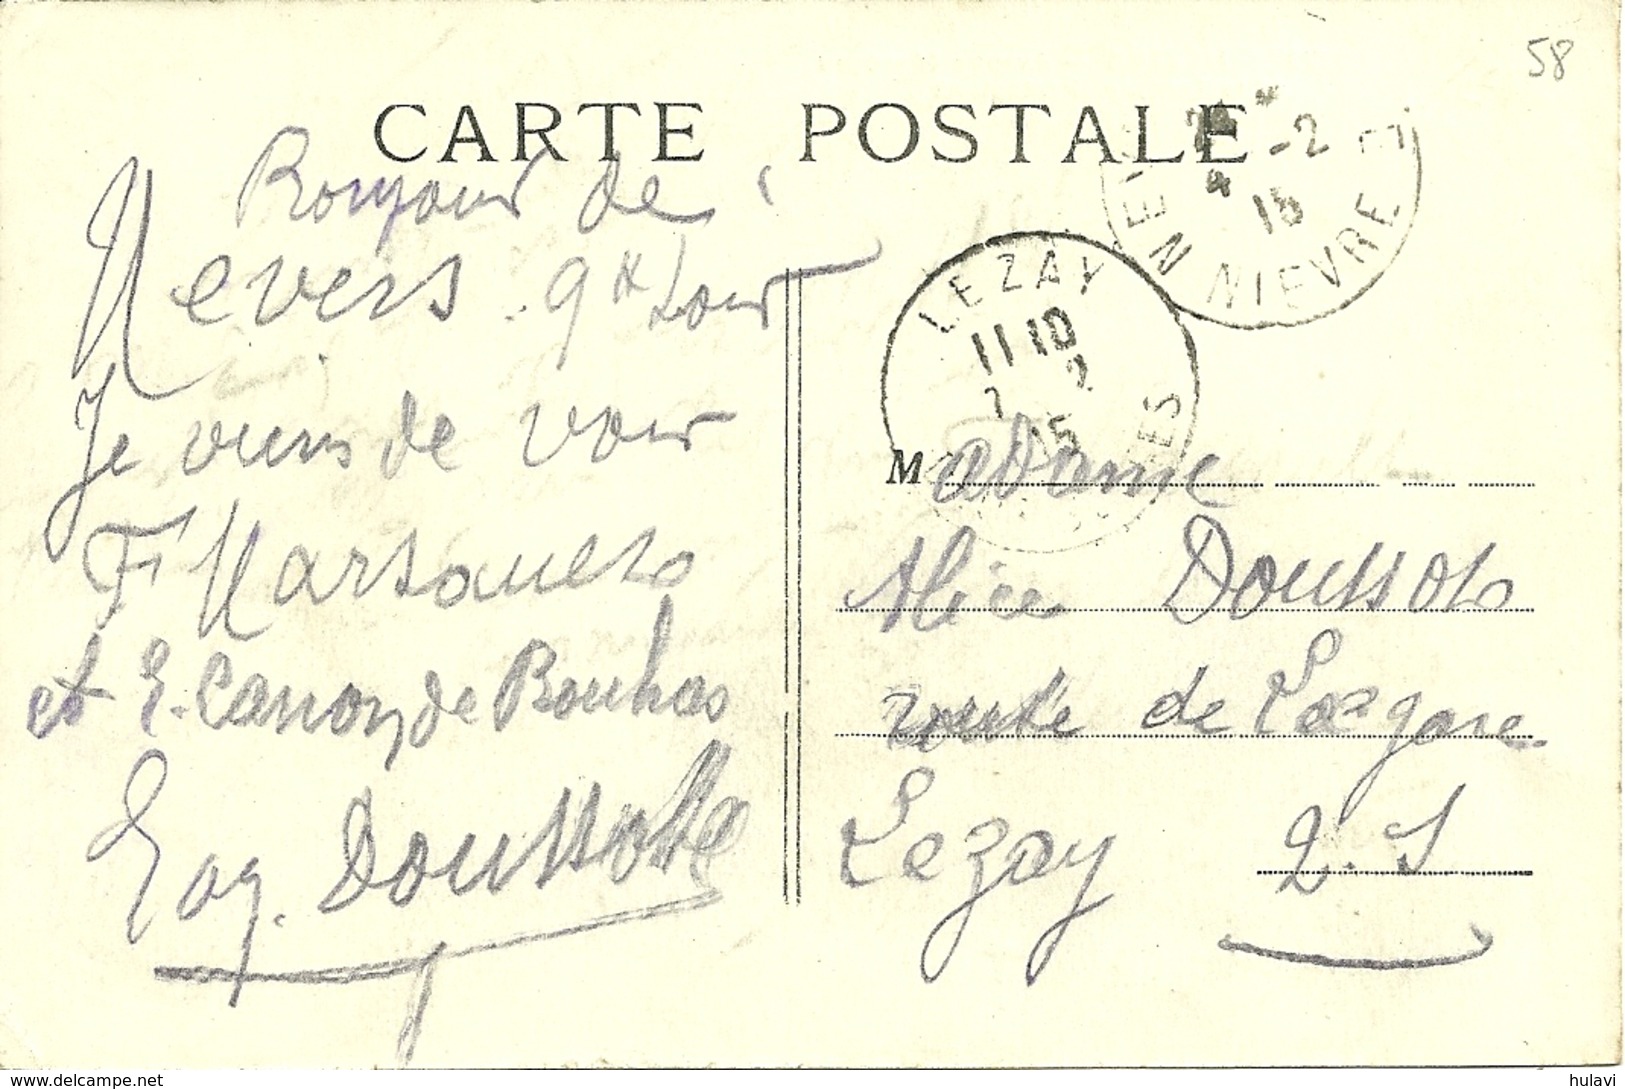 58
CARTE POSTALE
Bonjour de
Nevers. 9h Soir
Je viens de voir
F Marsaules
et E. Canon de Bouhas
Eug. Doussot
NEVERS NIEVRE
-2
15
LEZAY
11 10
7 2
15
Madame
Alice Doussot
route de La gare
Lezay 2. S
delcampe.net
hulavi